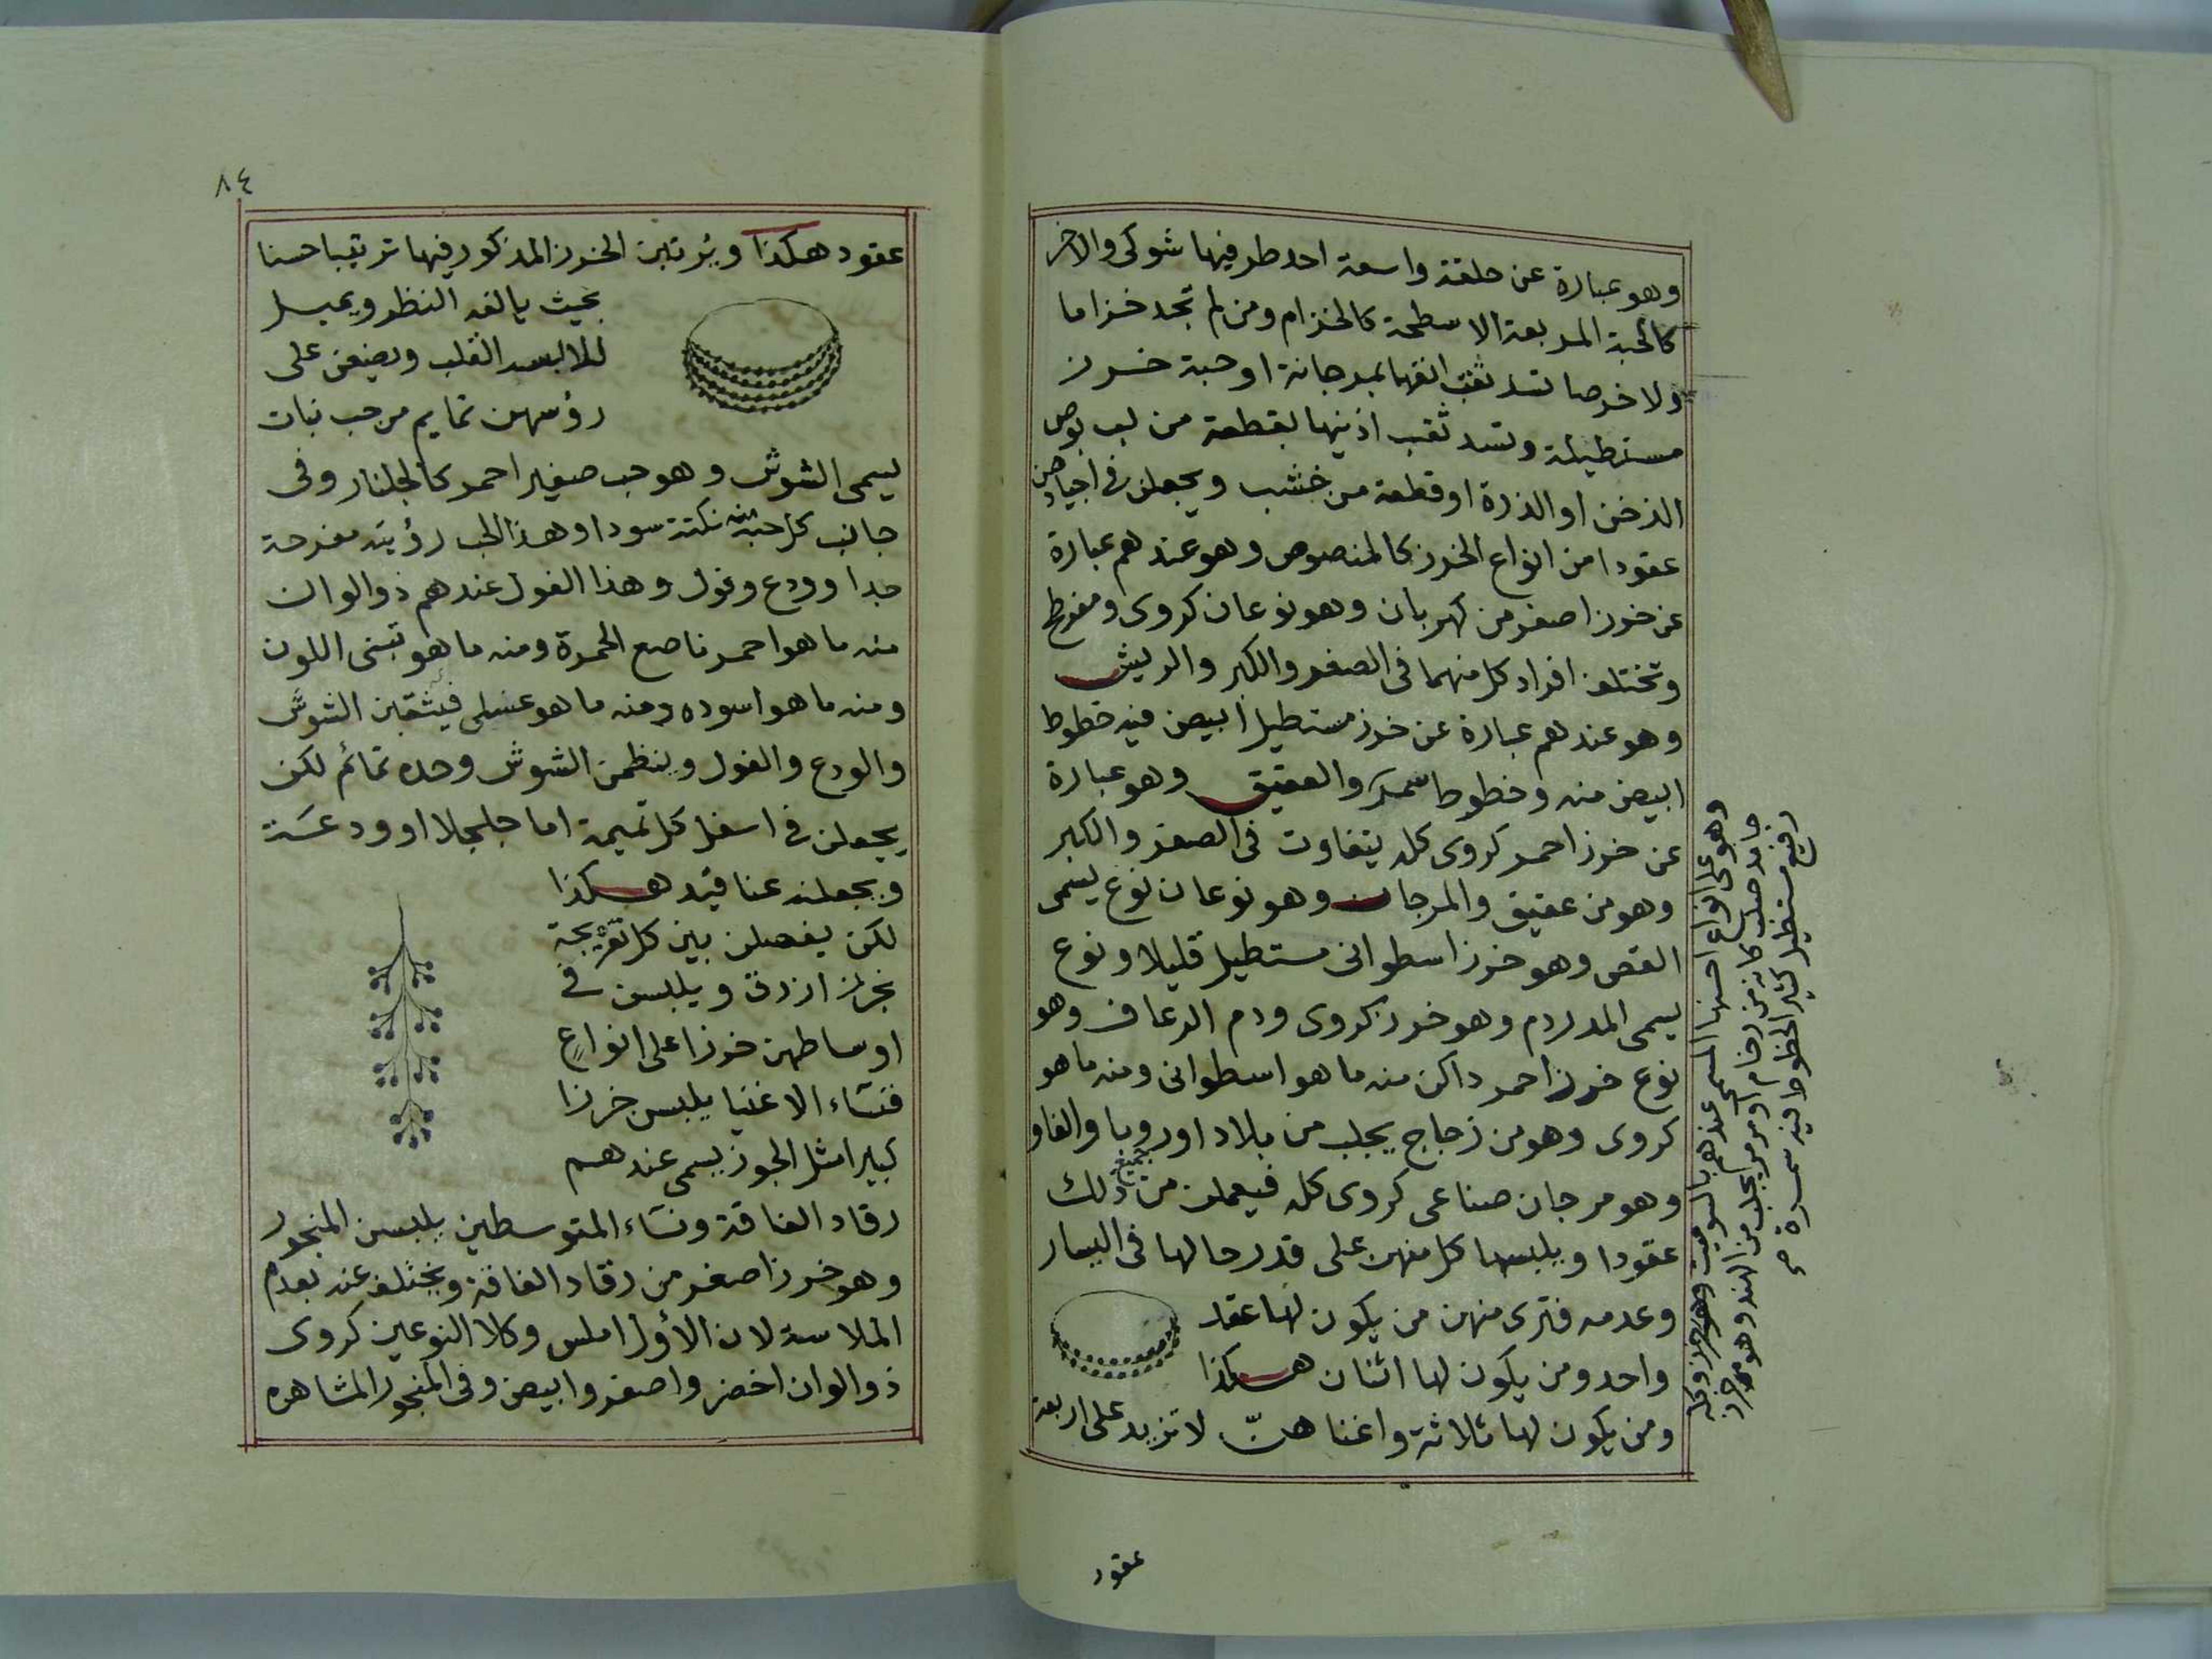 وهو عبارة عن حلقة واسعة احد طرفيها شوكى والاخر
كالحبة المربعة الاسطحة كالخزام ومن لم تجد خزاما
ولا خرصا تسد ثقب انفها بمرجانة او حبة خرز
مستطيلة وتسد ثقب اذنيها بقطعة من لب بوص
الدخن او الذرة او قطعة من خشب ويجعلن فى اجيادهن
عقودا من انواع الخرز كالمنصوص وهو عندهم عبارة
عن خرز اصفر من كهربان وهو نوعان كروى ومفرطح
وتختلف افراد كل منهما فى الصغر والكبر والريش
وهو عندهم عبارة عن خرز مستطيل ابيض فيه خطوط
ابيض منه وخطوط سمر والعقيق وهو عبارة
عن خرز احمر كروى كله يتفاوت فى الصغر والكبر
وهو من عقيق والمرجان وهو نوعان نوع يسمى
القص وهو خرز اسطوانى مستطيل قليلا ونوع
يسمى المدردم وهو خرز كروى ودم الرعاف وهو
نوع خرز احمر داكن منه ما هو اسطوانى ومنه ما هو
كروى وهو من زجاج يجلب من بلاد اوروبا والفاو
وهو مرجان صناعى كروى كله فيعملن من جميع ذلك
عقودا ويلبسها كل منهن على قدر حالها فى اليسار
وعدمه فترى منهن من يكون لها عقد
واحد ومن يكون لها اثنان هكذا
ومن يكون لها ثلاثة واغناهنّ لا تزيد على اربعة
وهو على انواع احسنها المسمى عندهم بالسوميت وهو خرز وكله
جامد صلب كانه من رخام او مرمر يجلب من الهند وهو خرز
رفيع مستطيل كثير الخطوط فيه سمرة صح
عقود
٨٤
عقود هكذا ويرتبن الخرز المذكور فيها ترتيبا حسنا
بحيث يالفه النظر ويميل
للابسه القلب ويضعن على
رؤسهن تمايم من حب نبات
يسمى الشوش وهو حب صغير احمر كالجلنار وفى
جانب كل حبة منه نكتة سودا وهذا الحب رؤيته مفرحة
جدا وودع وفول وهذا الفول عندهم ذو الوان
منه ما هو احمر ناصع الحمرة ومنه ما هو تبنى اللون
ومنه ما هو اسود ومنه ما هو عسلى فيثقبن الشوش
والودع والفول وينظمن الشوش وحده تمائم لكن
يجعلن فى اسفل كل تميمة اما جلجلا او ودعة
ويجعلنه عناقيد هكذا
لكن يفصلن بين كل تفريجة
بخرز ازرق ويلبسن فى
اوساطهن خرزا على انواع
فنساء الاغنيا يلبسن خرزا
كبيرا مثل الجوز يسمى عندهم
رقاد الفاقة ونساء المتوسطين يلبسن المنجور
وهو خرز اصغر من رقاد الفاقة ويختلف عنه بعدم
الملاسة لان الأول املس وكلا النوعين كروى
ذو الوان اخضر واصفر وابيض وفى المنجور المشاهره